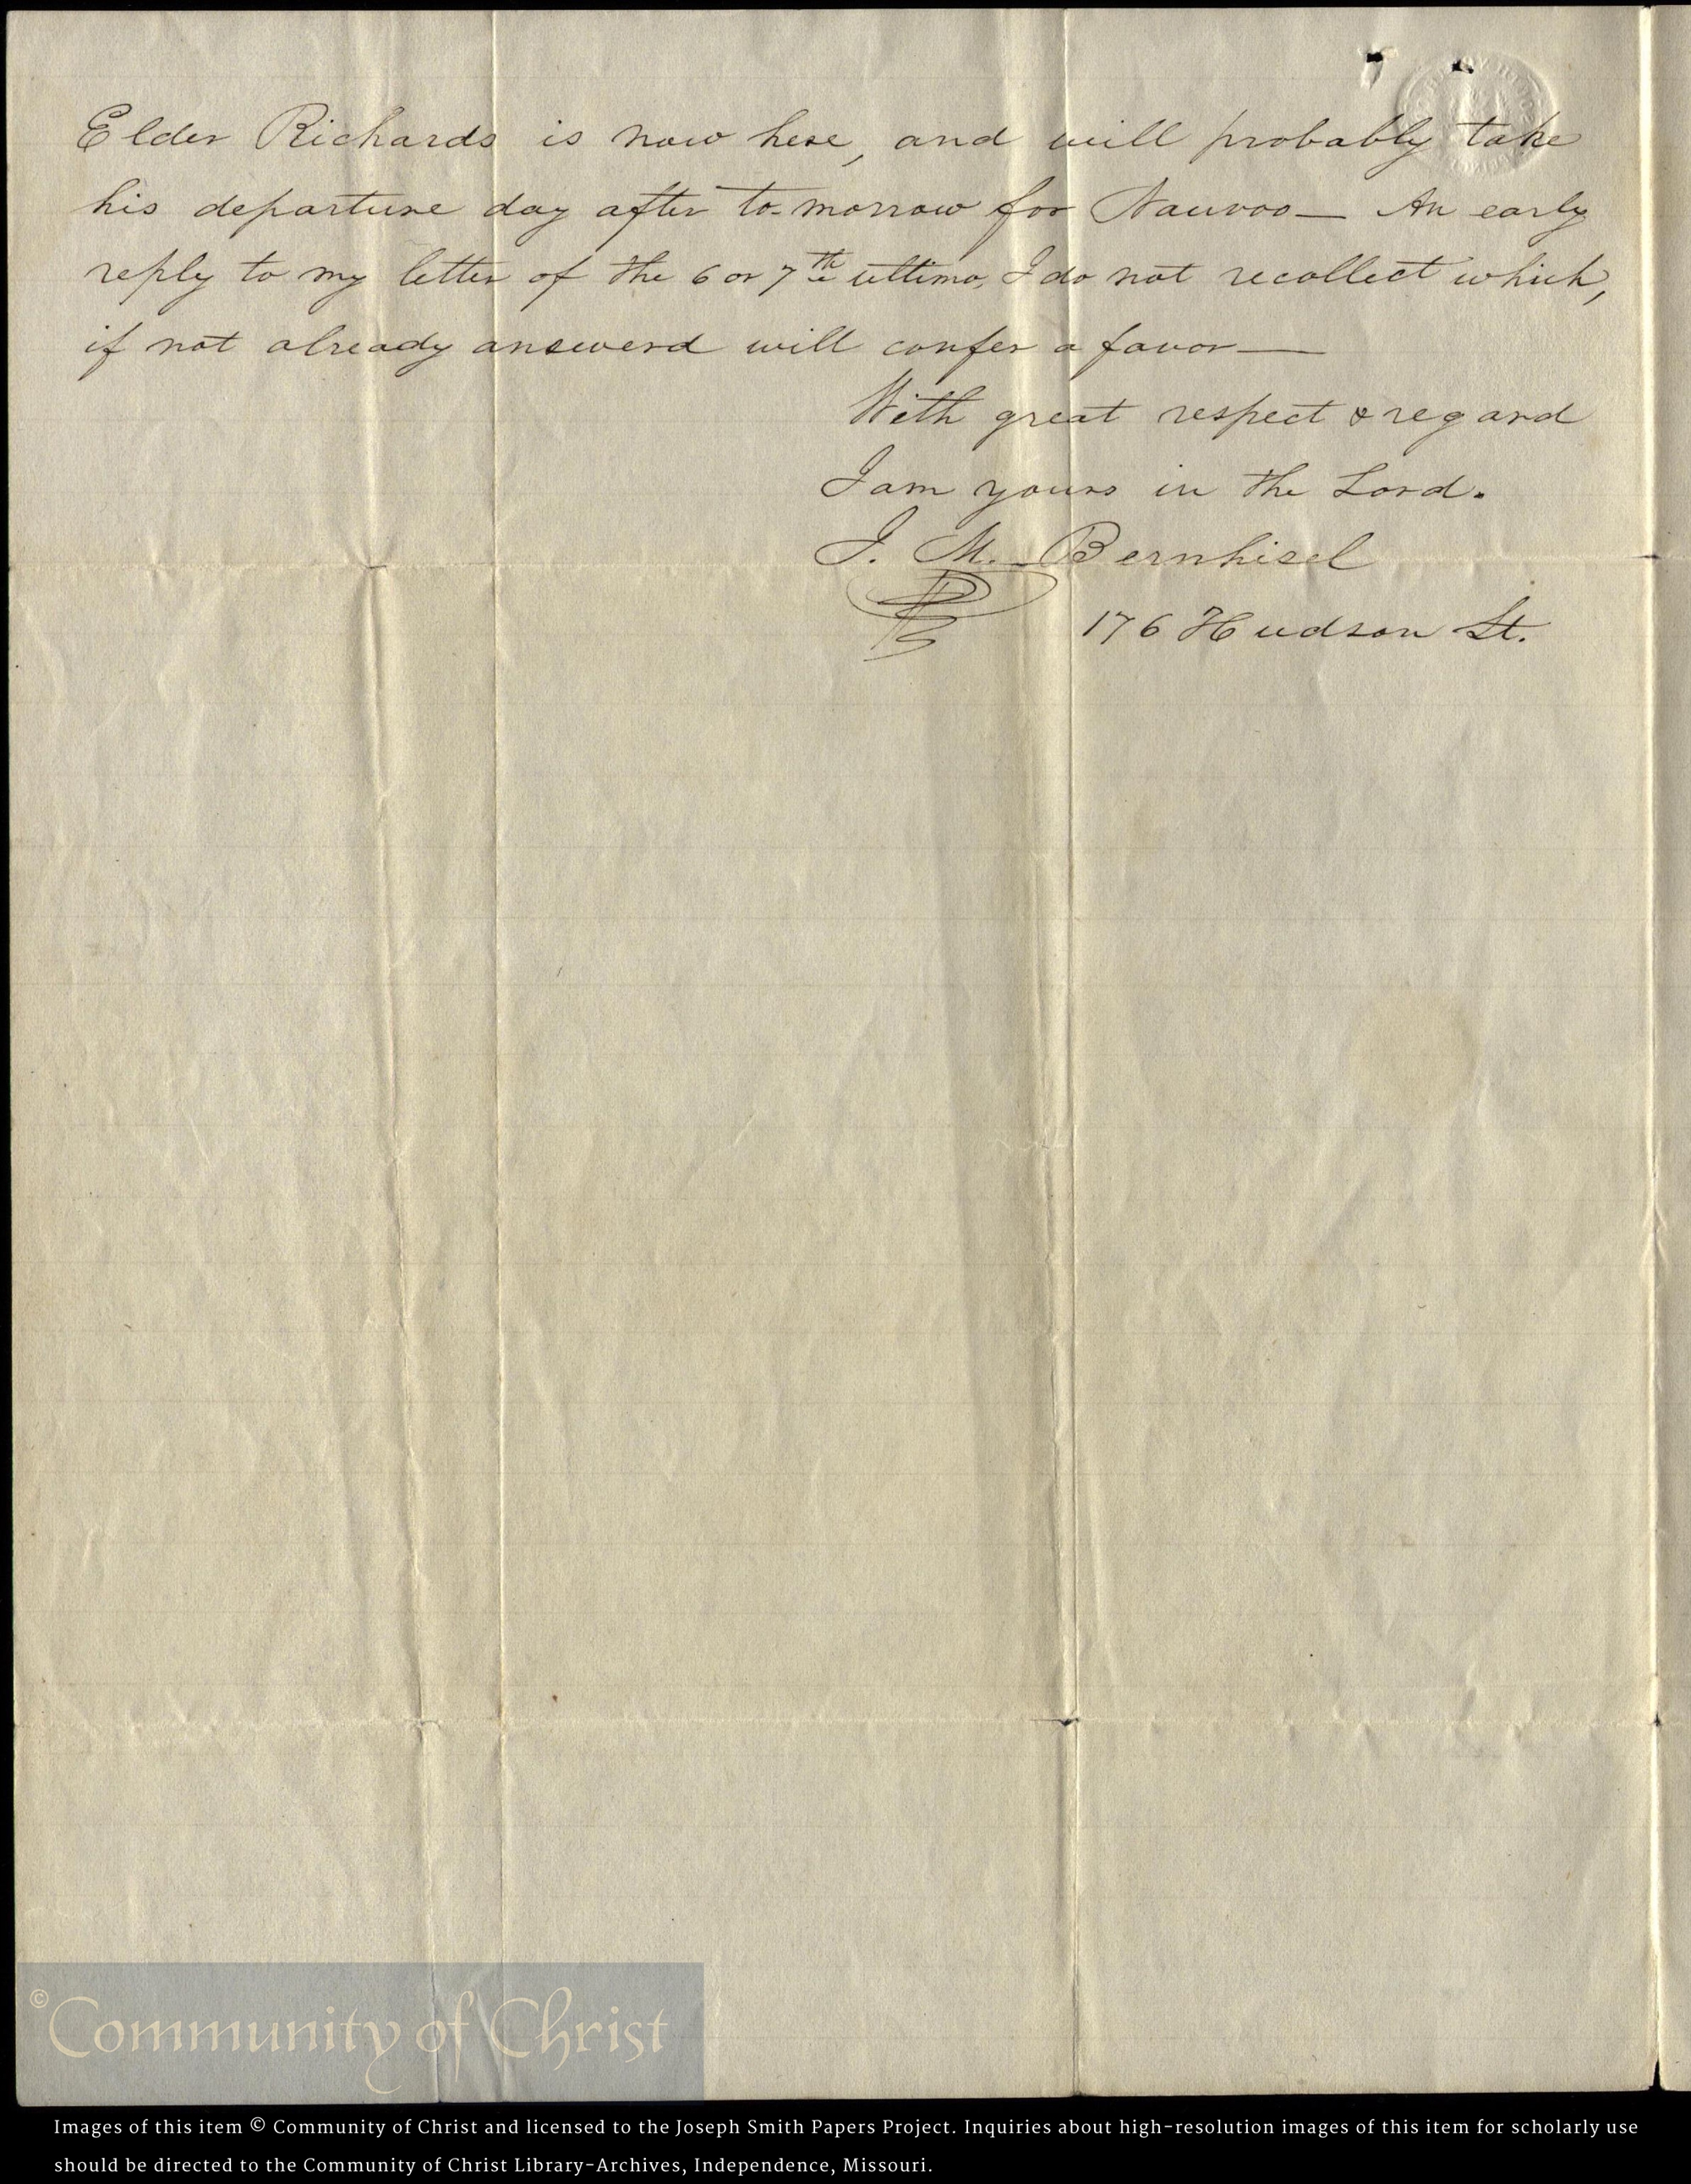 Elder Richards is now here, and will probably take
his departure day after to-morrow for Nauvoo— An early
reply to my letter of the 6 or 7th ultimo, I do not recollect which,
if not already answerd will confer a favor—
With great respect & regard
I am yours in the Lord.
J. M. Bernhisel
176 Hudson St.
© Community of Christ
Images of this item © Community of Christ and licensed to the Joseph Smith Papers Project. Inquiries about high-resolution images of this item for scholarly use
should be directed to the Community of Christ Library-Archives, Independence, Missouri.